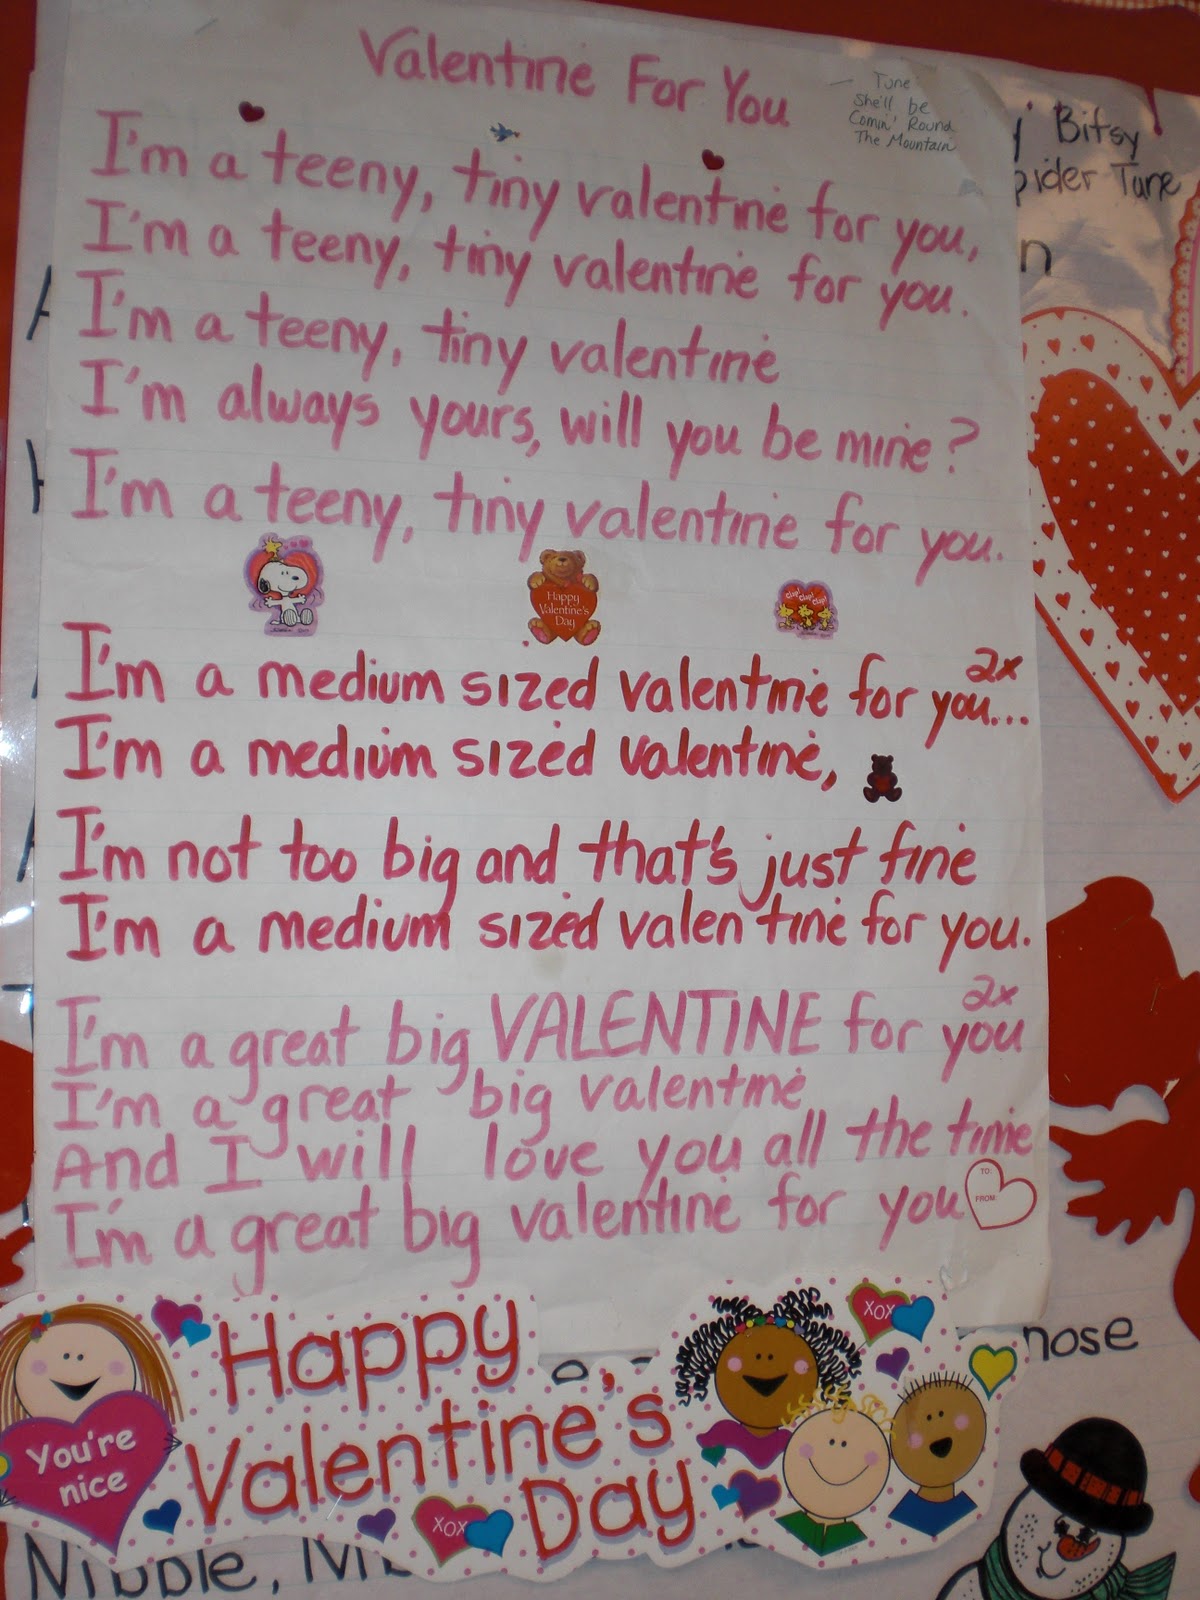 Valentine For You
Tune
She'll be
Comin' Round
The Mountain
I'm a teeny, tiny valentine for you,
I'm a teeny, tiny valentine for you.
I'm a teeny, tiny valentine
I'm always yours, will you be mine?
I'm a teeny, tiny valentine for you.
Happy
Valentine's
Day
Clap! Clap! Clap!
I'm a medium sized valentine for you... 2x
I'm a medium sized valentine,
I'm not too big and that's just fine
I'm a medium sized valentine for you.
I'm a great big VALENTINE for you 2x
I'm a great big valentine
And I will love you all the time
I'm a great big valentine for you
TO:
FROM:
Happy
Valentine's
Day
You're
nice
XOX
XOX
Bitsy
Tune
nose
Nibble,